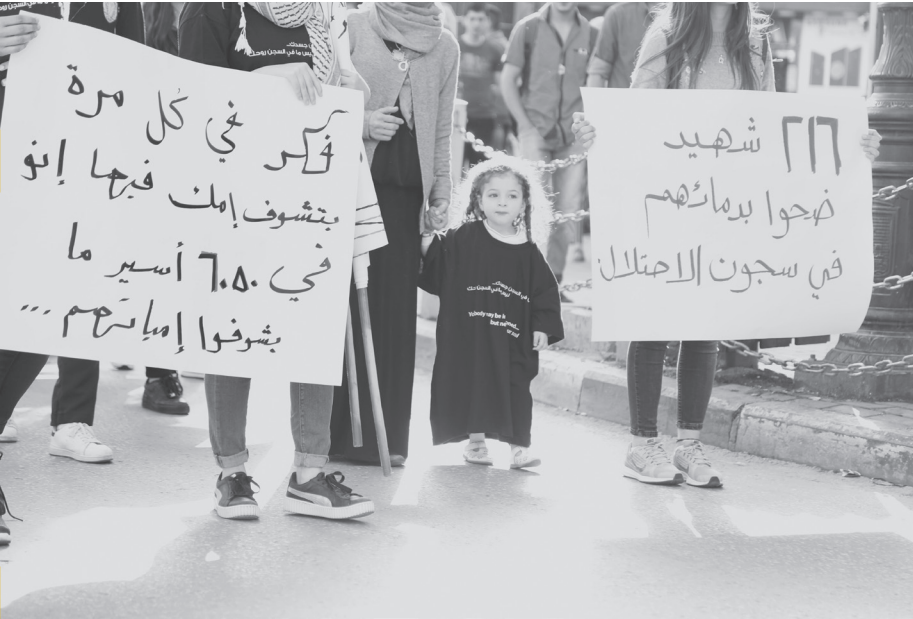 فكر في كل مرة
بتشوف إمك فيها إنو
في ٦٠٥٠ أسير ما
بشوفوا إمياتهم...
٢١٦ شهيد
ضحوا بدمائهم
في سجون الاحتلال